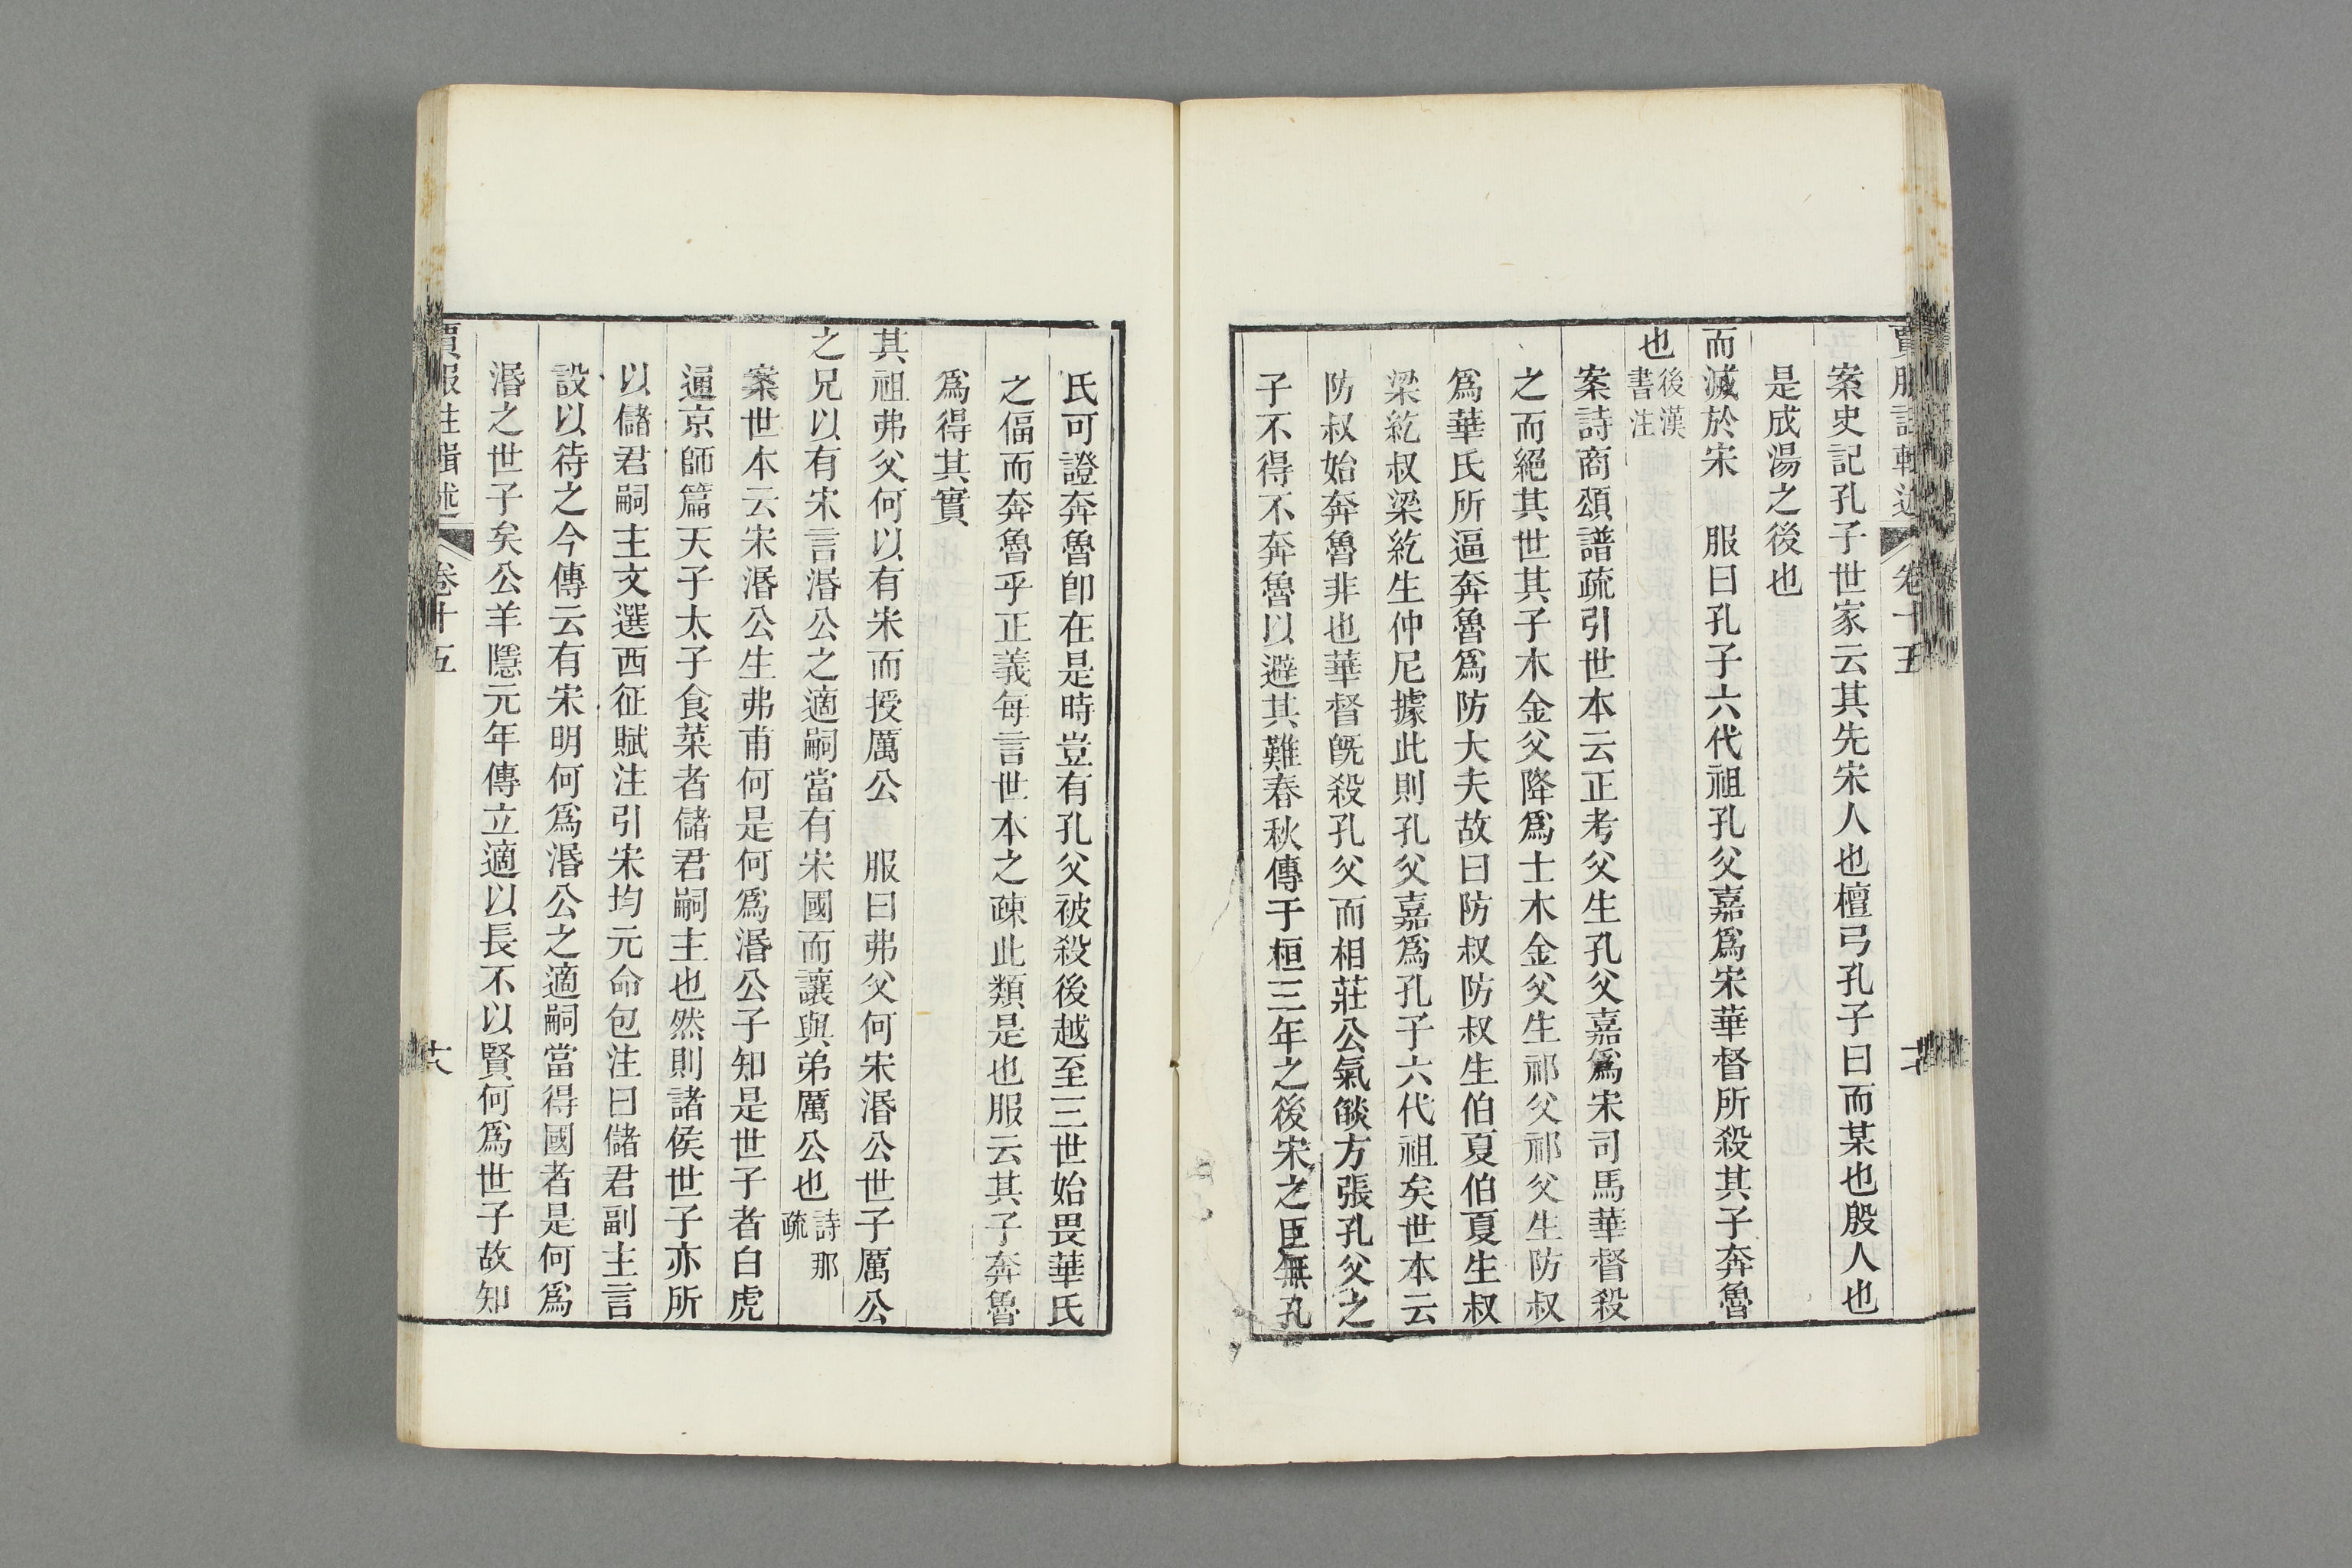 賈服註輯述 卷十五
案史記孔子世家云其先宋人也檀弓孔子曰而某也殷人也
是成湯之後也
而滅於宋 服曰孔子六代祖孔父嘉爲宋華督所殺其子奔魯
也後漢書注
案詩商頌譜疏引世本云正考父生孔父嘉爲宋司馬華督殺
之而絕其世其子木金父降爲士木金父生祁父祁父生防叔
爲華氏所逼奔魯爲防大夫故曰防叔防叔生伯夏伯夏生叔
梁紇叔梁紇生仲尼據此則孔父嘉爲孔子六代祖矣世本云
防叔始奔魯非也華督旣殺孔父而相莊公氣燄方張孔父之
子不得不奔魯以避其難春秋傳于桓三年之後宋之臣無孔
氏可證奔魯卽在是時豈有孔父被殺後越至三世始畏華氏
之偪而奔魯乎正義每言世本之疎此類是也服云其子奔魯
爲得其實
其祖弗父何以有宋而授厲公 服曰弗父何宋湣公世子厲公
之兄以有宋言湣公之適嗣當有宋國而讓與弟厲公也詩那疏
案世本云宋湣公生弗甫何是何爲湣公子知是世子者白虎
通京師篇天子太子食菜者儲君嗣主也然則諸侯世子亦所
以儲君嗣主文選西征賦注引宋均元命包注曰儲君副主言
設以待之今傳云有宋明何爲湣公之適嗣當得國者是何爲
湣之世子矣公羊隱元年傳立適以長不以賢何爲世子故知
賈服註輯述 卷十五 十六